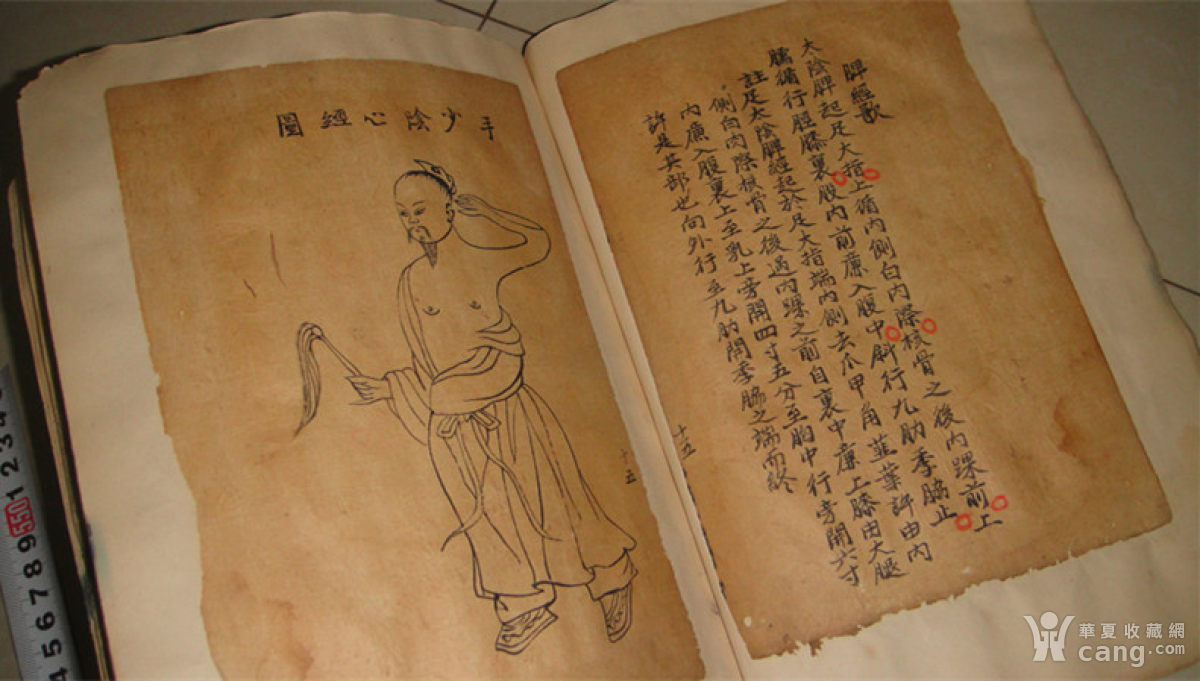 脾經歌
太陰脾起足大指上循內側白內際核骨之後內踝前上
腨循行脛膝裏股內前廉入腹中斜行九肋季脇止
註足太陰脾經起於足大指端內側去爪甲角韮葉許由內
側白肉際核骨之後過內踝之前自裏中廉上膝由大腿
內廉入腹裏上至乳上旁開四寸五分至胸中行旁開六寸
許是其部也向外行至九肋開季脇之端而終
十五
手少陰心經圖
十五
4 5 6 7 8 9 550 1 2 3 4
華夏收藏網
cang.com